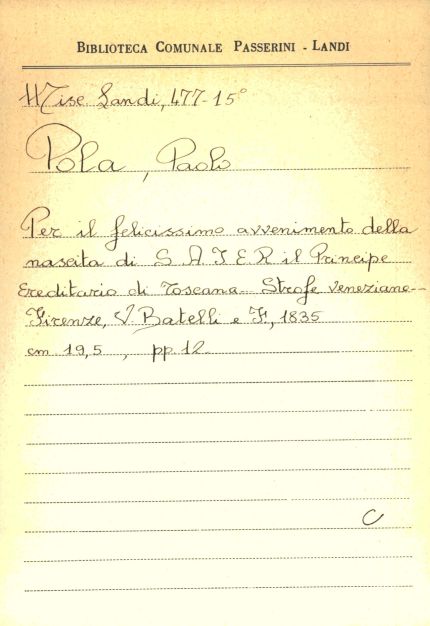 BIBLIOTECA COMUNALE PASSERINI - LANDI
Misc Landi, 477-15°
Pola, Paolo
Per il felicissimo avvenimento della
nascita di S. A. I. E R. il Principe
Ereditario di Toscana. Strofe veneziane.-
Firenze, V. Batelli e F., 1835
cm 19,5, pp. 12
C